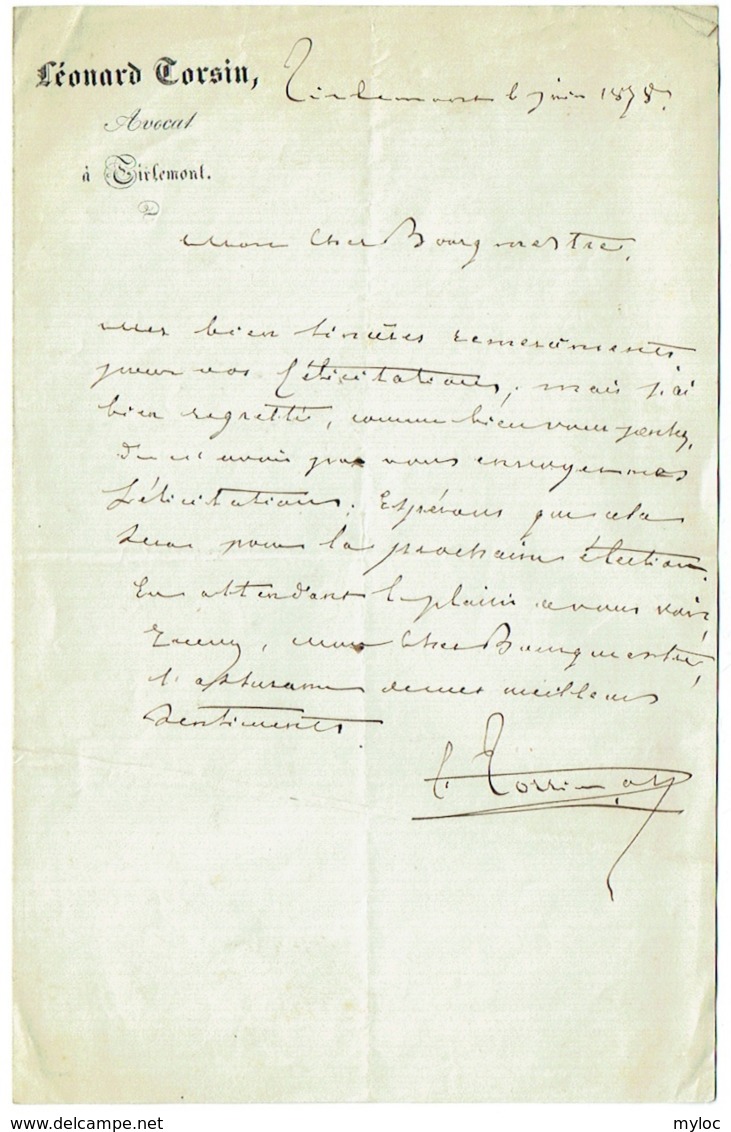 Léonard Torsin,
Avocat
à Tirlemont.
Tirlemont 6 juin 1878.
Mon Cher Bourgmestre,
Mes bien sincères remerciments
pour vos félicitations, mais j'ai
bien regretté, comme bien vous pensez,
de n'avoir pas vous envoyer mes
félicitations. Espérons que cela
sera pour la prochaine élection.
En attendant le plaisir de vous voir,
Recevez, mon Cher Bourgmestre,
l'assurance de mes meilleurs
sentiments.
L. Torsin
www.delcampe.net
myloc